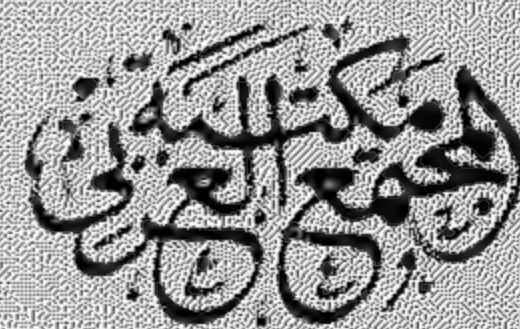 مكتبة المجمع العربي